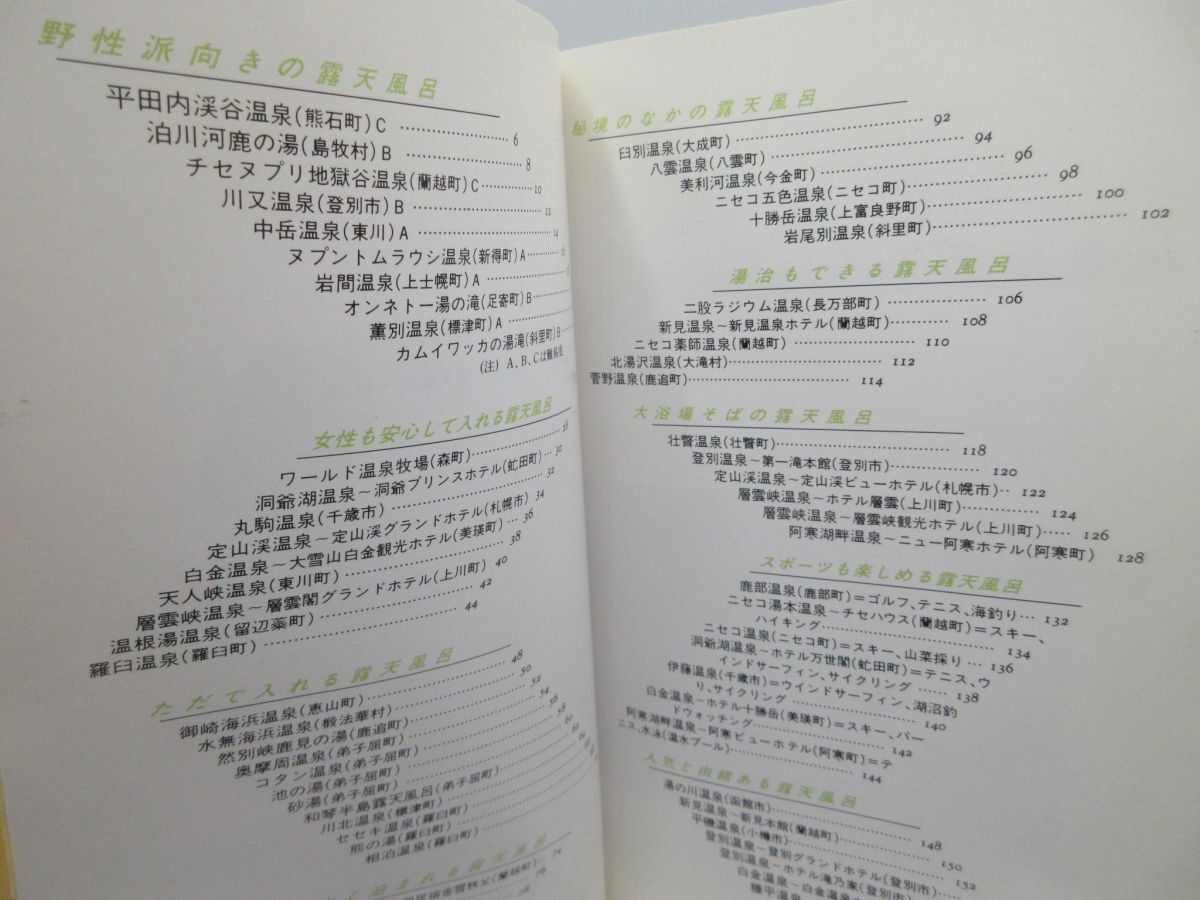 野性派向きの露天風呂
平田内渓谷温泉(熊石町)C …… 6
泊川河鹿の湯(島牧村)B …… 8
チセヌプリ地獄谷温泉(蘭越町)C …… 10
川又温泉(登別市)B …… 12
中岳温泉(東川)A …… 14
ヌプントムラウシ温泉(新得町)A …… 16
岩間温泉(上士幌町)A ……
オンネトー湯の滝(足寄町)B ……
薫別温泉(標津町)A ……
カムイワッカの湯滝(斜里町)B
(注) A、B、Cは難易度
女性も安心して入れる露天風呂
ワールド温泉牧場(森町) …… 28
洞爺湖温泉~洞爺プリンスホテル(虻田町) … 30
丸駒温泉(千歳市) …… 32
定山渓温泉~定山渓グランドホテル(札幌市) 34
白金温泉~大雪山白金観光ホテル(美瑛町) … 36
天人峡温泉(東川町) …… 38
層雲峡温泉~層雲閣グランドホテル(上川町) 40
温根湯温泉(留辺蘂町) …… 42
羅臼温泉(羅臼町) …… 44
ただで入れる露天風呂
御崎海浜温泉(恵山町) …… 48
水無海浜温泉(椴法華村) …… 50
然別峡鹿見の湯(鹿追町) …… 52
奥摩周温泉(弟子屈町) …… 54
コタン温泉(弟子屈町) …… 56
池の湯(弟子屈町) …… 58
砂湯(弟子屈町) …… 60
和琴半島露天風呂(弟子屈町)
川北温泉(標津町) ……
セセキ温泉(羅臼町) ……
熊の湯(羅臼町) ……
相泊温泉(羅臼町) ……
泊まれる露天風呂
雪秩父(蘭越町) … 74
76
78
秘境のなかの露天風呂
臼別温泉(大成町) …… 92
八雲温泉(八雲町) …… 94
美利河温泉(今金町) …… 96
ニセコ五色温泉(ニセコ町) …… 98
十勝岳温泉(上富良野町) …… 100
岩尾別温泉(斜里町) …… 102
湯治もできる露天風呂
二股ラジウム温泉(長万部町) …… 106
新見温泉~新見温泉ホテル(蘭越町) …… 108
ニセコ薬師温泉(蘭越町) …… 110
北湯沢温泉(大滝村) …… 112
菅野温泉(鹿追町) …… 114
大浴場そばの露天風呂
壮瞥温泉(壮瞥町) …… 118
登別温泉~第一滝本館(登別市) …… 120
定山渓温泉~定山渓ビューホテル(札幌市) ‥ 122
層雲峡温泉~ホテル層雲(上川町) …… 124
層雲峡温泉~層雲峡観光ホテル(上川町) …… 126
阿寒湖畔温泉~ニュー阿寒ホテル(阿寒町) 128
スポーツも楽しめる露天風呂
鹿部温泉(鹿部町)=ゴルフ、テニス、海釣り … 132
ニセコ湯本温泉~チセハウス(蘭越町)=スキー、
ハイキング …… 134
ニセコ温泉(ニセコ町)=スキー、山菜採り … 136
洞爺湖温泉~ホテル万世閣(虻田町)=テニス、ウ
インドサーフィン、サイクリング …… 138
伊藤温泉(千歳市)=ウインドサーフィン、湖沼釣
り、サイクリング …… 140
白金温泉~ホテル十勝岳(美瑛町)=スキー、バー
ドウォッチング …… 142
阿寒湖畔温泉~阿寒ビューホテル(阿寒町)=テ
ニス、水泳(温水プール) …… 144
人気と由緒ある露天風呂
湯の川温泉(函館市) ……
新見温泉~新見本館(蘭越町) …… 148
平磯温泉(小樽市) …… 150
登別温泉~登別グランドホテル(登別市) …… 152
登別温泉~ホテル滝乃家(登別市)
白金温泉~白金温
糠平温泉